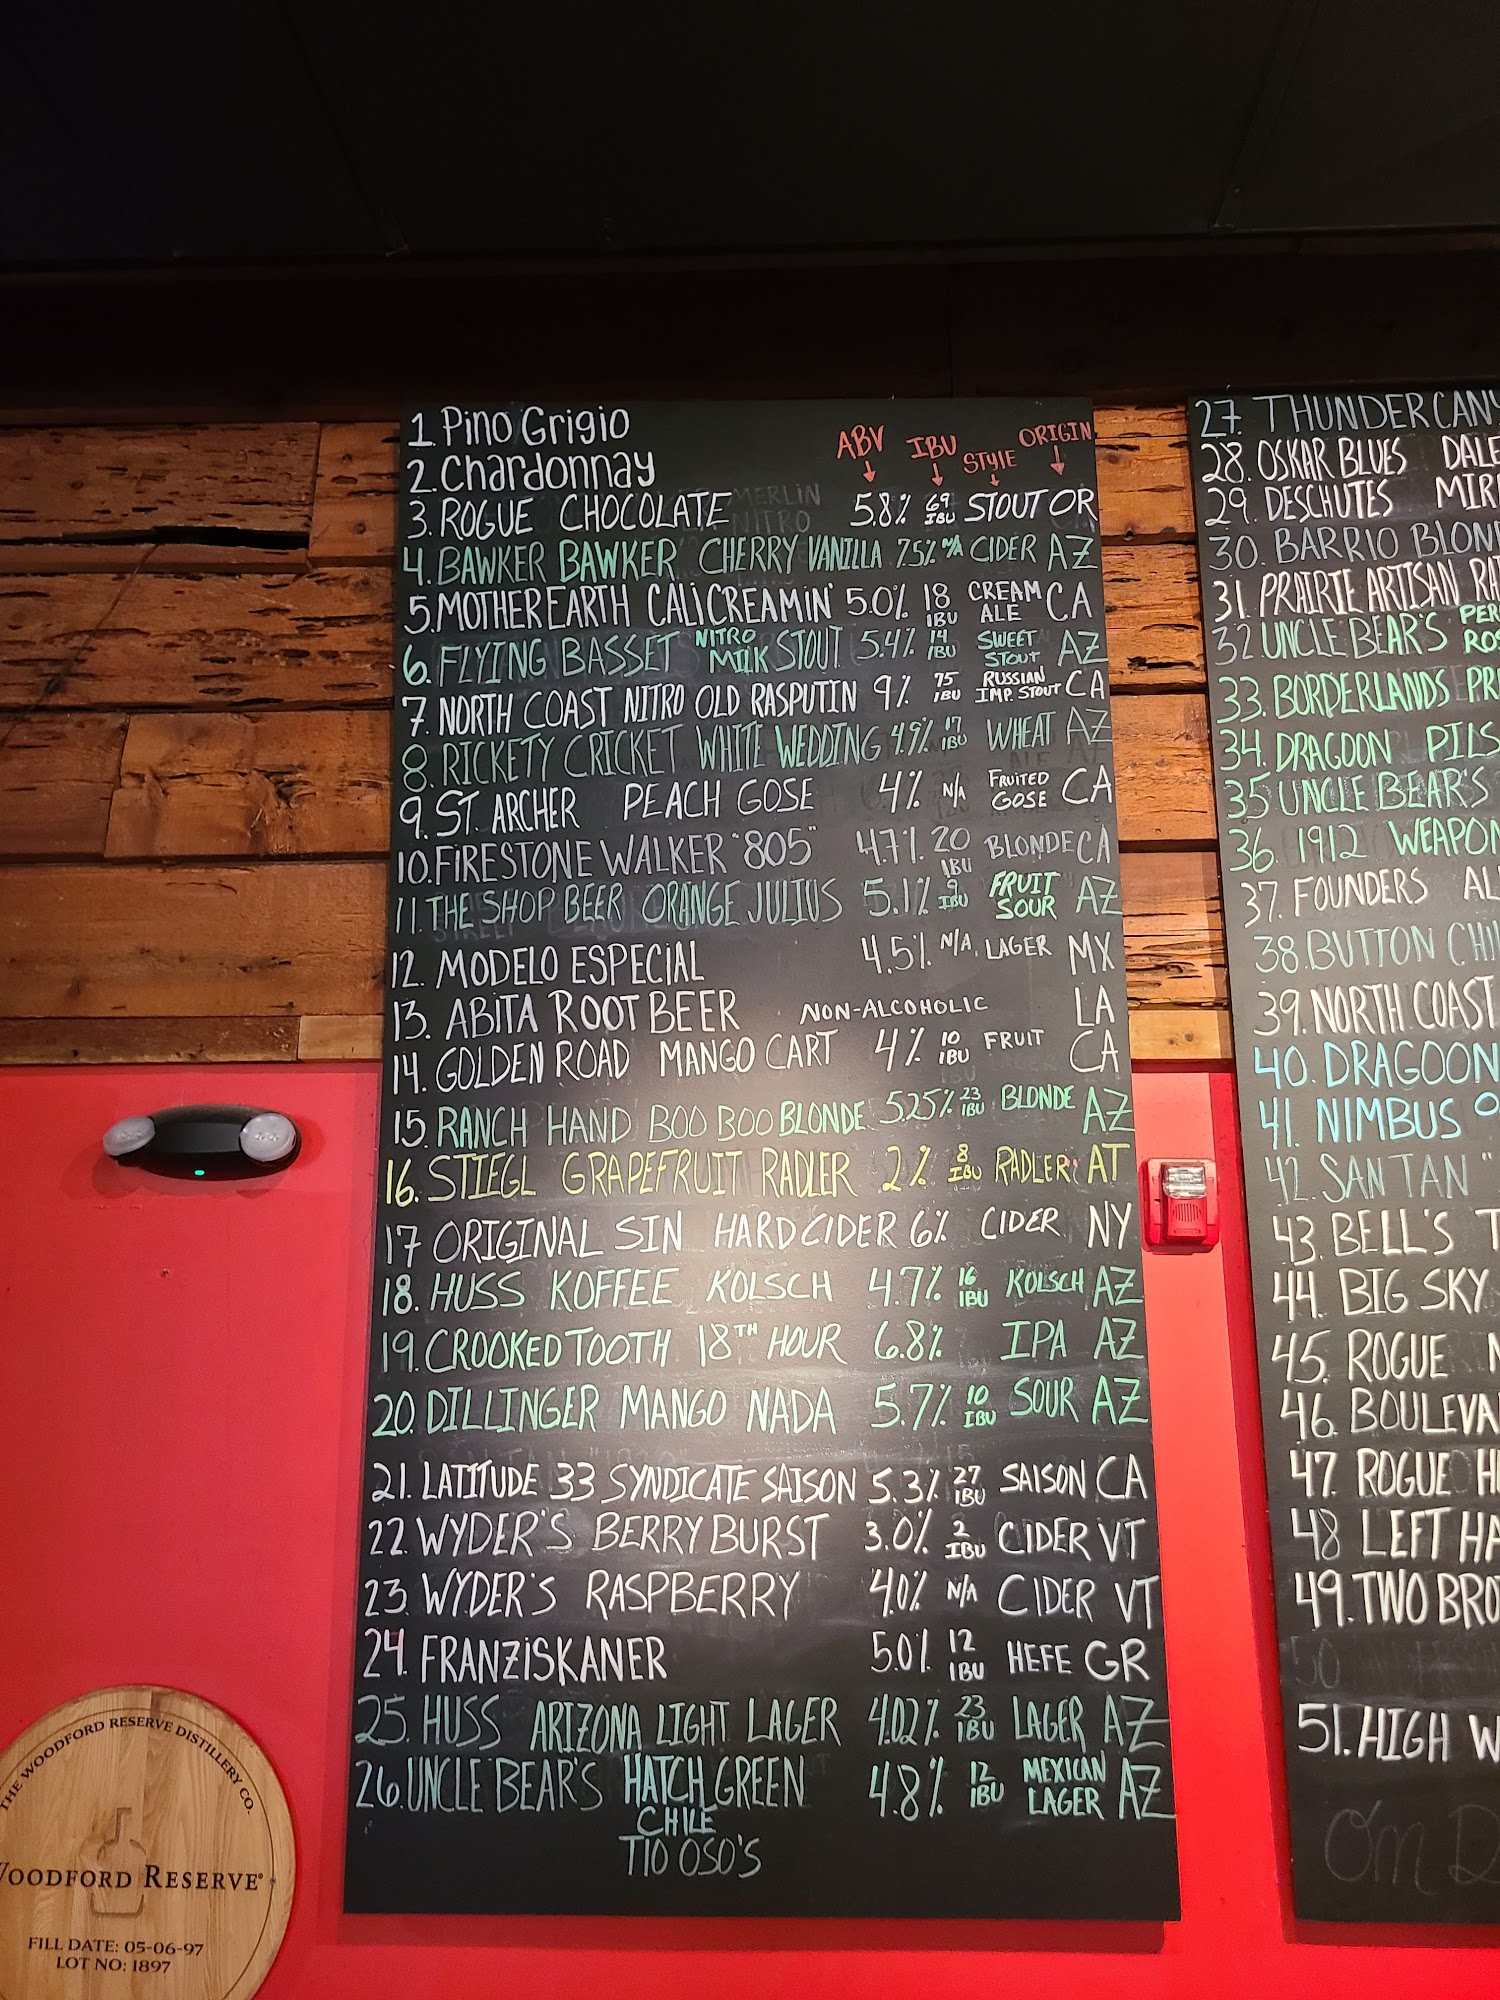 ABV IBU STYLE ORIGIN
1. Pino Grigio
2. Chardonnay
3. ROGUE CHOCOLATE 5.8% 69 IBU STOUT OR
4. BAWKER BAWKER CHERRY VANILLA 7.5% N/A CIDER AZ
5. MOTHER EARTH CALI CREAMIN' 5.0% 18 IBU CREAM ALE CA
6. FLYING BASSET NITRO MILK STOUT 5.4% 14 IBU SWEET STOUT AZ
7. NORTH COAST NITRO OLD RASPUTIN 9% 75 IBU RUSSIAN IMP. STOUT CA
8. RICKETY CRICKET WHITE WEDDING 4.9% 17 IBU WHEAT AZ
9. ST. ARCHER PEACH GOSE 4% N/A FRUITED GOSE CA
10. FIRESTONE WALKER "805" 4.7% 20 IBU BLONDE CA
11. THE SHOP BEER ORANGE JULIUS 5.1% 9 IBU FRUIT SOUR AZ
12. MODELO ESPECIAL 4.5% N/A. LAGER MX
13. ABITA ROOT BEER NON-ALCOHOLIC LA
14. GOLDEN ROAD MANGO CART 4% 10 IBU FRUIT CA
15. RANCH HAND BOO BOO BLONDE 5.25% 23 IBU BLONDE AZ
16. STIEGL GRAPEFRUIT RADLER 2% 8 IBU RADLER AT
17 ORIGINAL SIN HARD CIDER 6% CIDER NY
18. HUSS KOFFEE KOLSCH 4.7% 16 IBU KOLSCH AZ
19. CROOKED TOOTH 18TH HOUR 6.8% IPA AZ
20. DILLINGER MANGO NADA 5.7% 10 IBU SOUR AZ
21. LATITUDE 33 SYNDICATE SAISON 5.3% 27 IBU SAISON CA
22. WYDER'S BERRY BURST 3.0% 2 IBU CIDER VT
23. WYDER'S RASPBERRY 4.0% N/A CIDER VT
24. FRANZISKANER 5.0% 12 IBU HEFE GR
25. HUSS ARIZONA LIGHT LAGER 4.02% 23 IBU LAGER AZ
26. UNCLE BEAR'S HATCH GREEN 4.8% 12 IBU MEXICAN LAGER AZ
CHILE
TIO OSO'S
27. THUNDER CANY
28. OSKAR BLUES DALE
29. DESCHUTES MIR
30. BARRIO BLON
31. PRAIRIE ARTISAN RA
32 UNCLE BEAR'S PE ROS
33. BORDERLANDS PR
34. DRAGOON PILS
35 UNCLE BEAR'S
36. 1912 WEAPON
37. FOUNDERS AL
38. BUTTON CHI
39. NORTH COAST
40. DRAGOON
41. NIMBUS O
42. SAN TAN "
43. BELL'S T
44. BIG SKY
45. ROGUE
46. BOULEVA
47. ROGUE H
48 LEFT HA
49. TWO BRO
50
51. HIGH W
THE WOODFORD RESERVE DISTILLERY CO.
WOODFORD RESERVE®
FILL DATE: 05-06-97
LOT NO: 1897